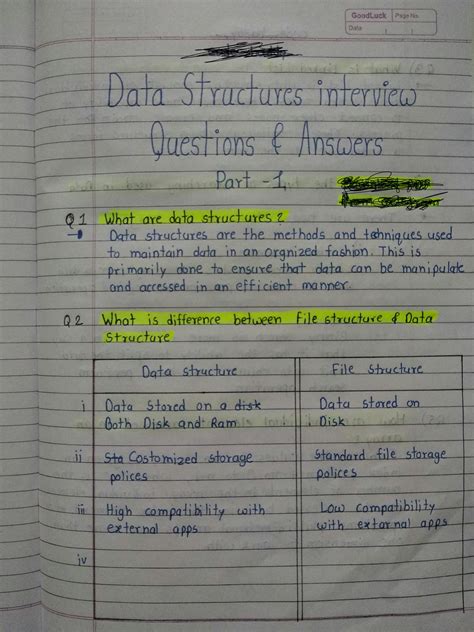 GoodLuck Page No.
Date
Data Structures interview
Questions & Answers
Part -1
Q1 What are data structures?
Data structures are the methods and techniques used
to maintain data in an orgnized fashion. This is
primarily done to ensure that data can be manipulate
and accessed in an efficient manner.
Q2 What is difference between File structure & Data
Structure
Data structure File structure
i Data Stored on a disk Data stored on
Both Disk and Ram Disk
ii Sta Costomized storage Standard file storage
polices polices
iii High compatibility with Low compatibility
external apps with extarnal apps
iv